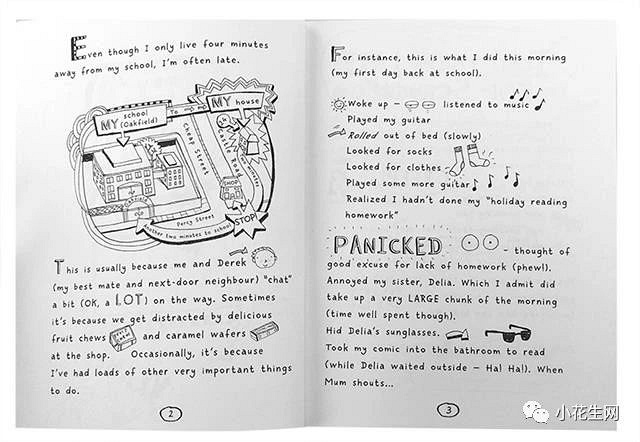 Even though I only live four minutes
away from my school, I'm often late.
MY school
(Oakfield)
To
MY house
Cheap Street
Road
SHOP
OAKFIELD
Percy Street
Another two minutes to school
STOP
This is usually because me and Derek
(my best mate and next-door neighbour) "chat"
a bit (OK, a LOT) on the way. Sometimes
it's because we get distracted by delicious
fruit chews and caramel wafers
at the shop. Occasionally, it's because
I've had loads of other very important things
to do.
2
For instance, this is what I did this morning
(my first day back at school).
Woke up – listened to music
Played my guitar
Rolled out of bed (slowly)
Looked for socks
Looked for clothes
Played some more guitar
Realized I hadn't done my "holiday reading
homework"
PANICKED – thought of
good excuse for lack of homework (phew!).
Annoyed my sister, Delia. Which I admit did
take up a very LARGE chunk of the morning
(time well spent though).
Hid Delia's sunglasses.
Took my comic into the bathroom to read
(while Delia waited outside – Ha! Ha!). When
Mum shouts...
3
小花生网